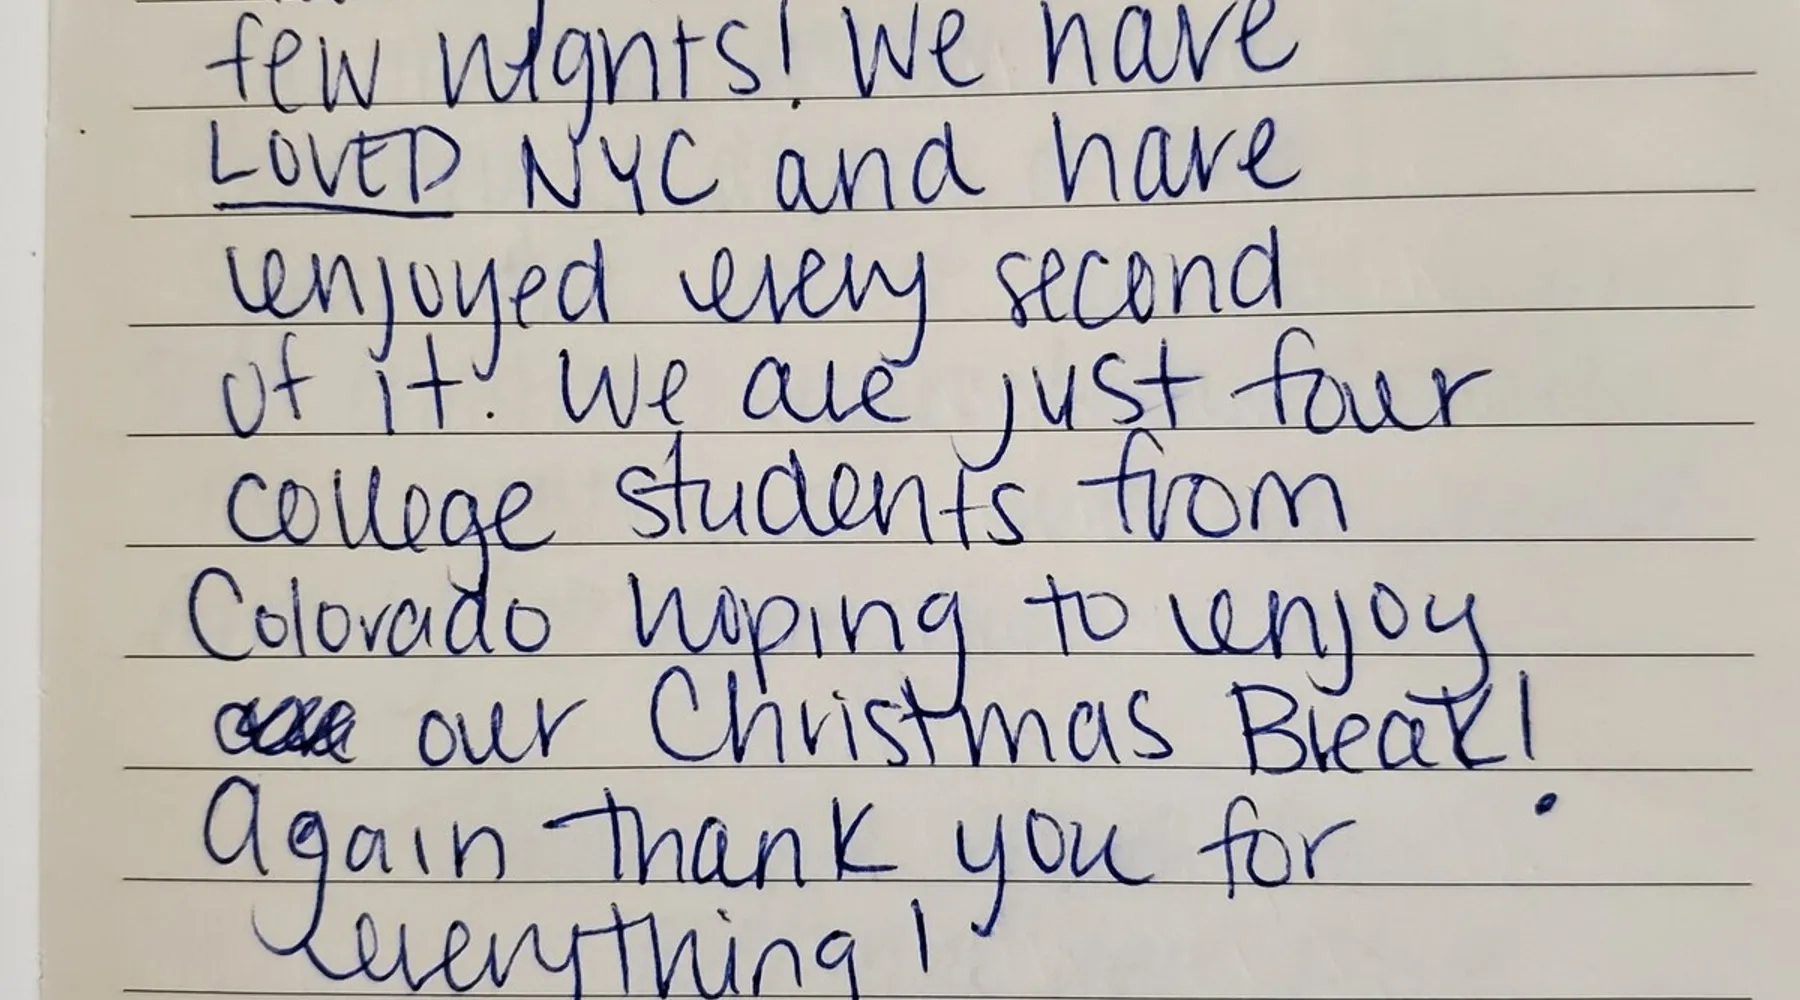 few nights! We have
LOVED NYC and have
enjoyed every second
of it. We are just four
college students from
Colorado hoping to enjoy
our Christmas Break!
Again thank you for
everything!